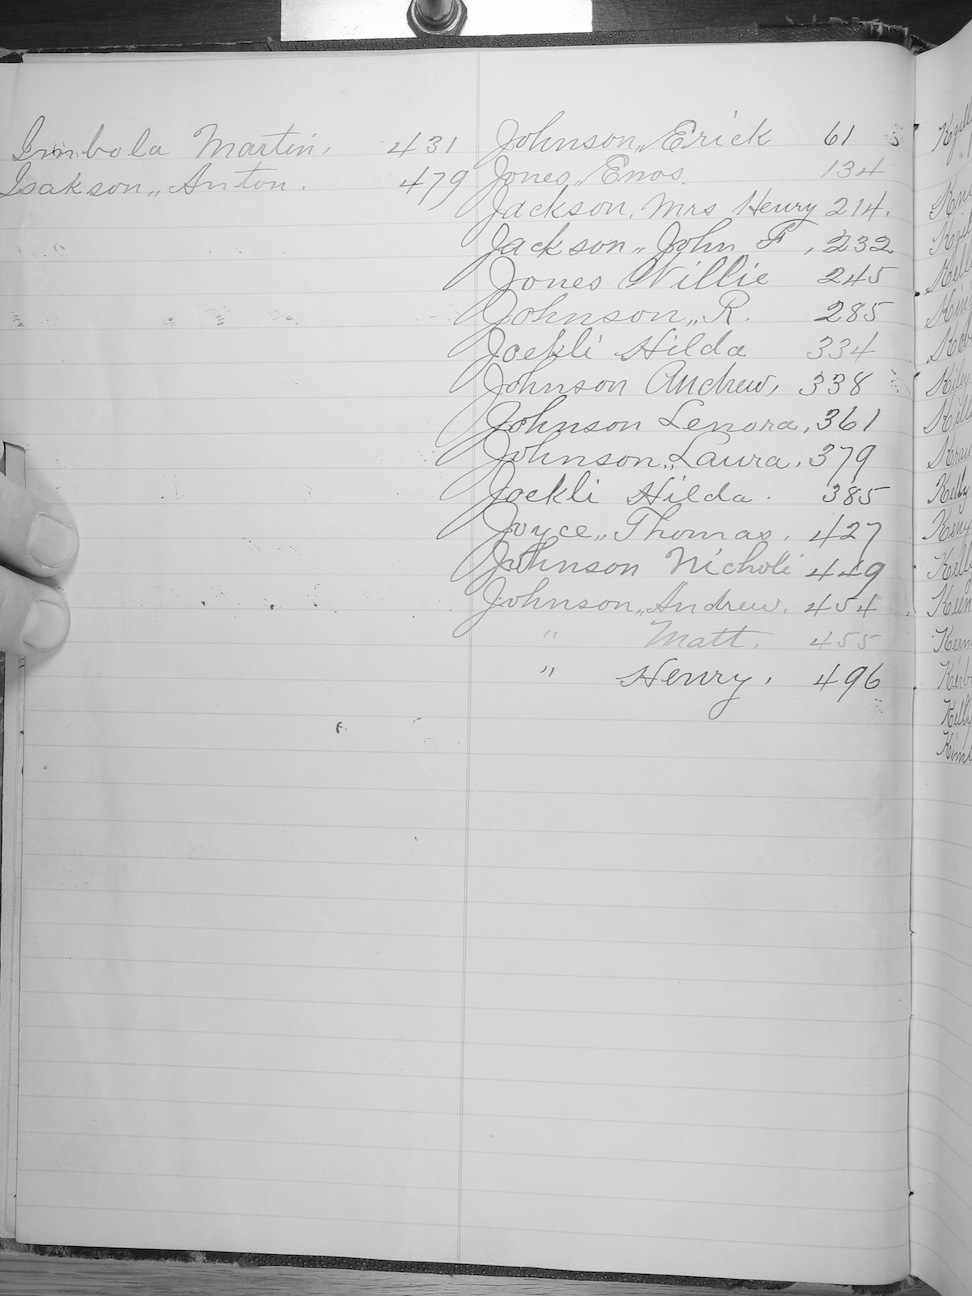 Imbola Martin, 431
Isakson,, Anton. 479
Johnson,, Erick 61
Jones,, Enos. 134
Jackson, Mrs Henry 214.
Jackson,, John F, 232
Jones Willie 245
Johnson,, R. 285
Joekli Hilda 334
Johnson Andrew, 338
Johnson Lenora, 361
Johnson,, Laura, 379
Jockli Hilda. 385
Joyce,, Thomas, 427
Johnson Nicholi 449
Johnson,, Andrew. 454
" Matt. 455
" Henry, 496